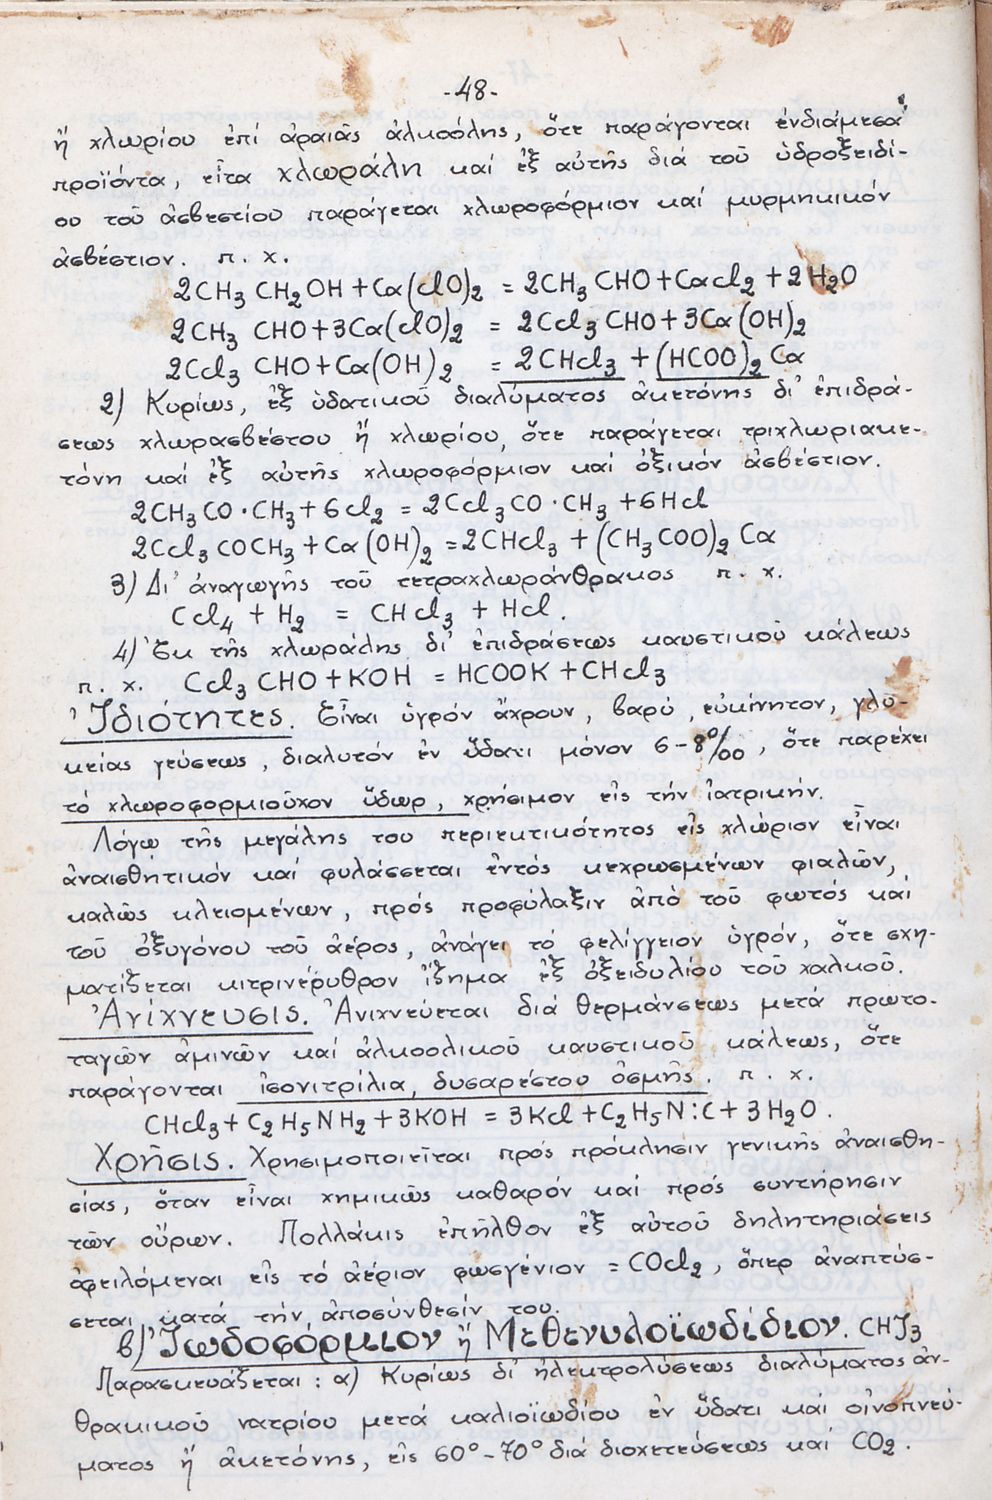 -48-
ἤ χλωρίου ἐπί ἀραιᾶς ἀλκοόλης, ὅτε παράγονται ἐνδιάμεσα
προϊόντα, εἶτα χλωράλη καί ἐξ αὐτῆς διά τοῦ ὑδροξειδί-
ου τοῦ ἀσβεστίου παράγεται χλωροφόρμιον καί μυρμηκικόν
ἀσβέστιον. π. χ.
2CH₃ CH₂OH + Ca(ClO)₂ = 2CH₃ CHO + CaCl₂ + 2H₂O
2CH₃ CHO + 3Ca(ClO)₂ = 2CCl₃ CHO + 3Ca(OH)₂
2CCl₃ CHO + Ca(OH)₂ = 2CHCl₃ + (HCOO)₂ Ca
2) Κυρίως, ἐξ ὑδατικοῦ διαλύματος ἀκετόνης δι' ἐπιδρά-
σεως χλωρασβέστου ἤ χλωρίου, ὅτε παράγεται τριχλωριακε-
τόνη καί ἐξ αὐτῆς χλωροφόρμιον καί ὀξικόν ἀσβέστιον.
2CH₃ CO·CH₃ + 6Cl₂ = 2CCl₃ CO·CH₃ + 6HCl
2CCl₃ COCH₃ + Ca(OH)₂ = 2CHCl₃ + (CH₃COO)₂ Ca
3) Δι' ἀναγωγῆς τοῦ τετραχλωράνθρακος π. χ.
CCl₄ + H₂ = CHCl₃ + HCl
4) Ἐκ τῆς χλωράλης δι' ἐπιδράσεως καυστικοῦ κάλεως
π. χ. CCl₃ CHO + KOH = HCOOK + CHCl₃
Ἰδιότητες. Εἶναι ὑγρόν ἄχρουν, βαρύ, εὐκίνητον, γλυ-
κείας γεύσεως, διαλυτόν ἐν ὕδατι μόνον 6-8‰, ὅτε παρέχει
το χλωροφορμιοῦχον ὕδωρ, χρήσιμον εἰς τήν ἰατρικήν.
Λόγω τῆς μεγάλης του περιεκτικότητος εἰς χλώριον εἶναι
ἀναισθητικόν καί φυλάσσεται ἐντός κεχρωσμένων φιαλῶν,
καλῶς κλειομένων, πρός προφύλαξιν ἀπό τοῦ φωτός καί
τοῦ ὀξυγόνου τοῦ ἀέρος, ἀνάγει τό φελίγγειον ὑγρόν, ὅτε σχη-
ματίζεται κιτρινέρυθρον ἵζημα ἐξ ὀξειδυλίου τοῦ χαλκοῦ.
Ἀνίχνευσις. Ἀνιχνεύεται διά θερμάνσεως μετά πρωτο-
ταγῶν ἀμινῶν καί ἀλκοολικοῦ καυστικοῦ κάλεως, ὅτε
παράγονται ἰσονιτρίλια, δυσαρέστου ὀσμῆς. π. χ.
CHCl₃ + C₂H₅NH₂ + 3KOH = 3KCl + C₂H₅N:C + 3H₂O.
Χρῆσις. Χρησιμοποιεῖται πρός πρόκλησιν γενικῆς ἀναισθη-
σίας, ὅταν εἶναι χημικῶς καθαρόν καί πρός συντήρησιν
τῶν οὔρων. Πολλάκις ἐπῆλθον ἐξ αὐτοῦ δηλητηριάσεις
ὀφειλόμεναι εἰς τό ἀέριον φωσγένιον = COCl₂, ὅπερ ἀναπτύσ-
σεται κατά τήν ἀποσύνθεσίν του.
β) Ἰωδοφόρμιον ἤ Μεθενυλοϊωδίδιον. CHJ₃
Παρασκευάζεται: α) Κυρίως δι' ἠλεκτρολύσεως διαλύματος ἀν-
θρακικοῦ νατρίου μετά καλιοϊωδίου ἐν ὕδατι καί οἰνοπνεύ-
ματος ἤ ἀκετόνης, εἰς 60°-70° διά διοχετεύσεως καί CO₂.